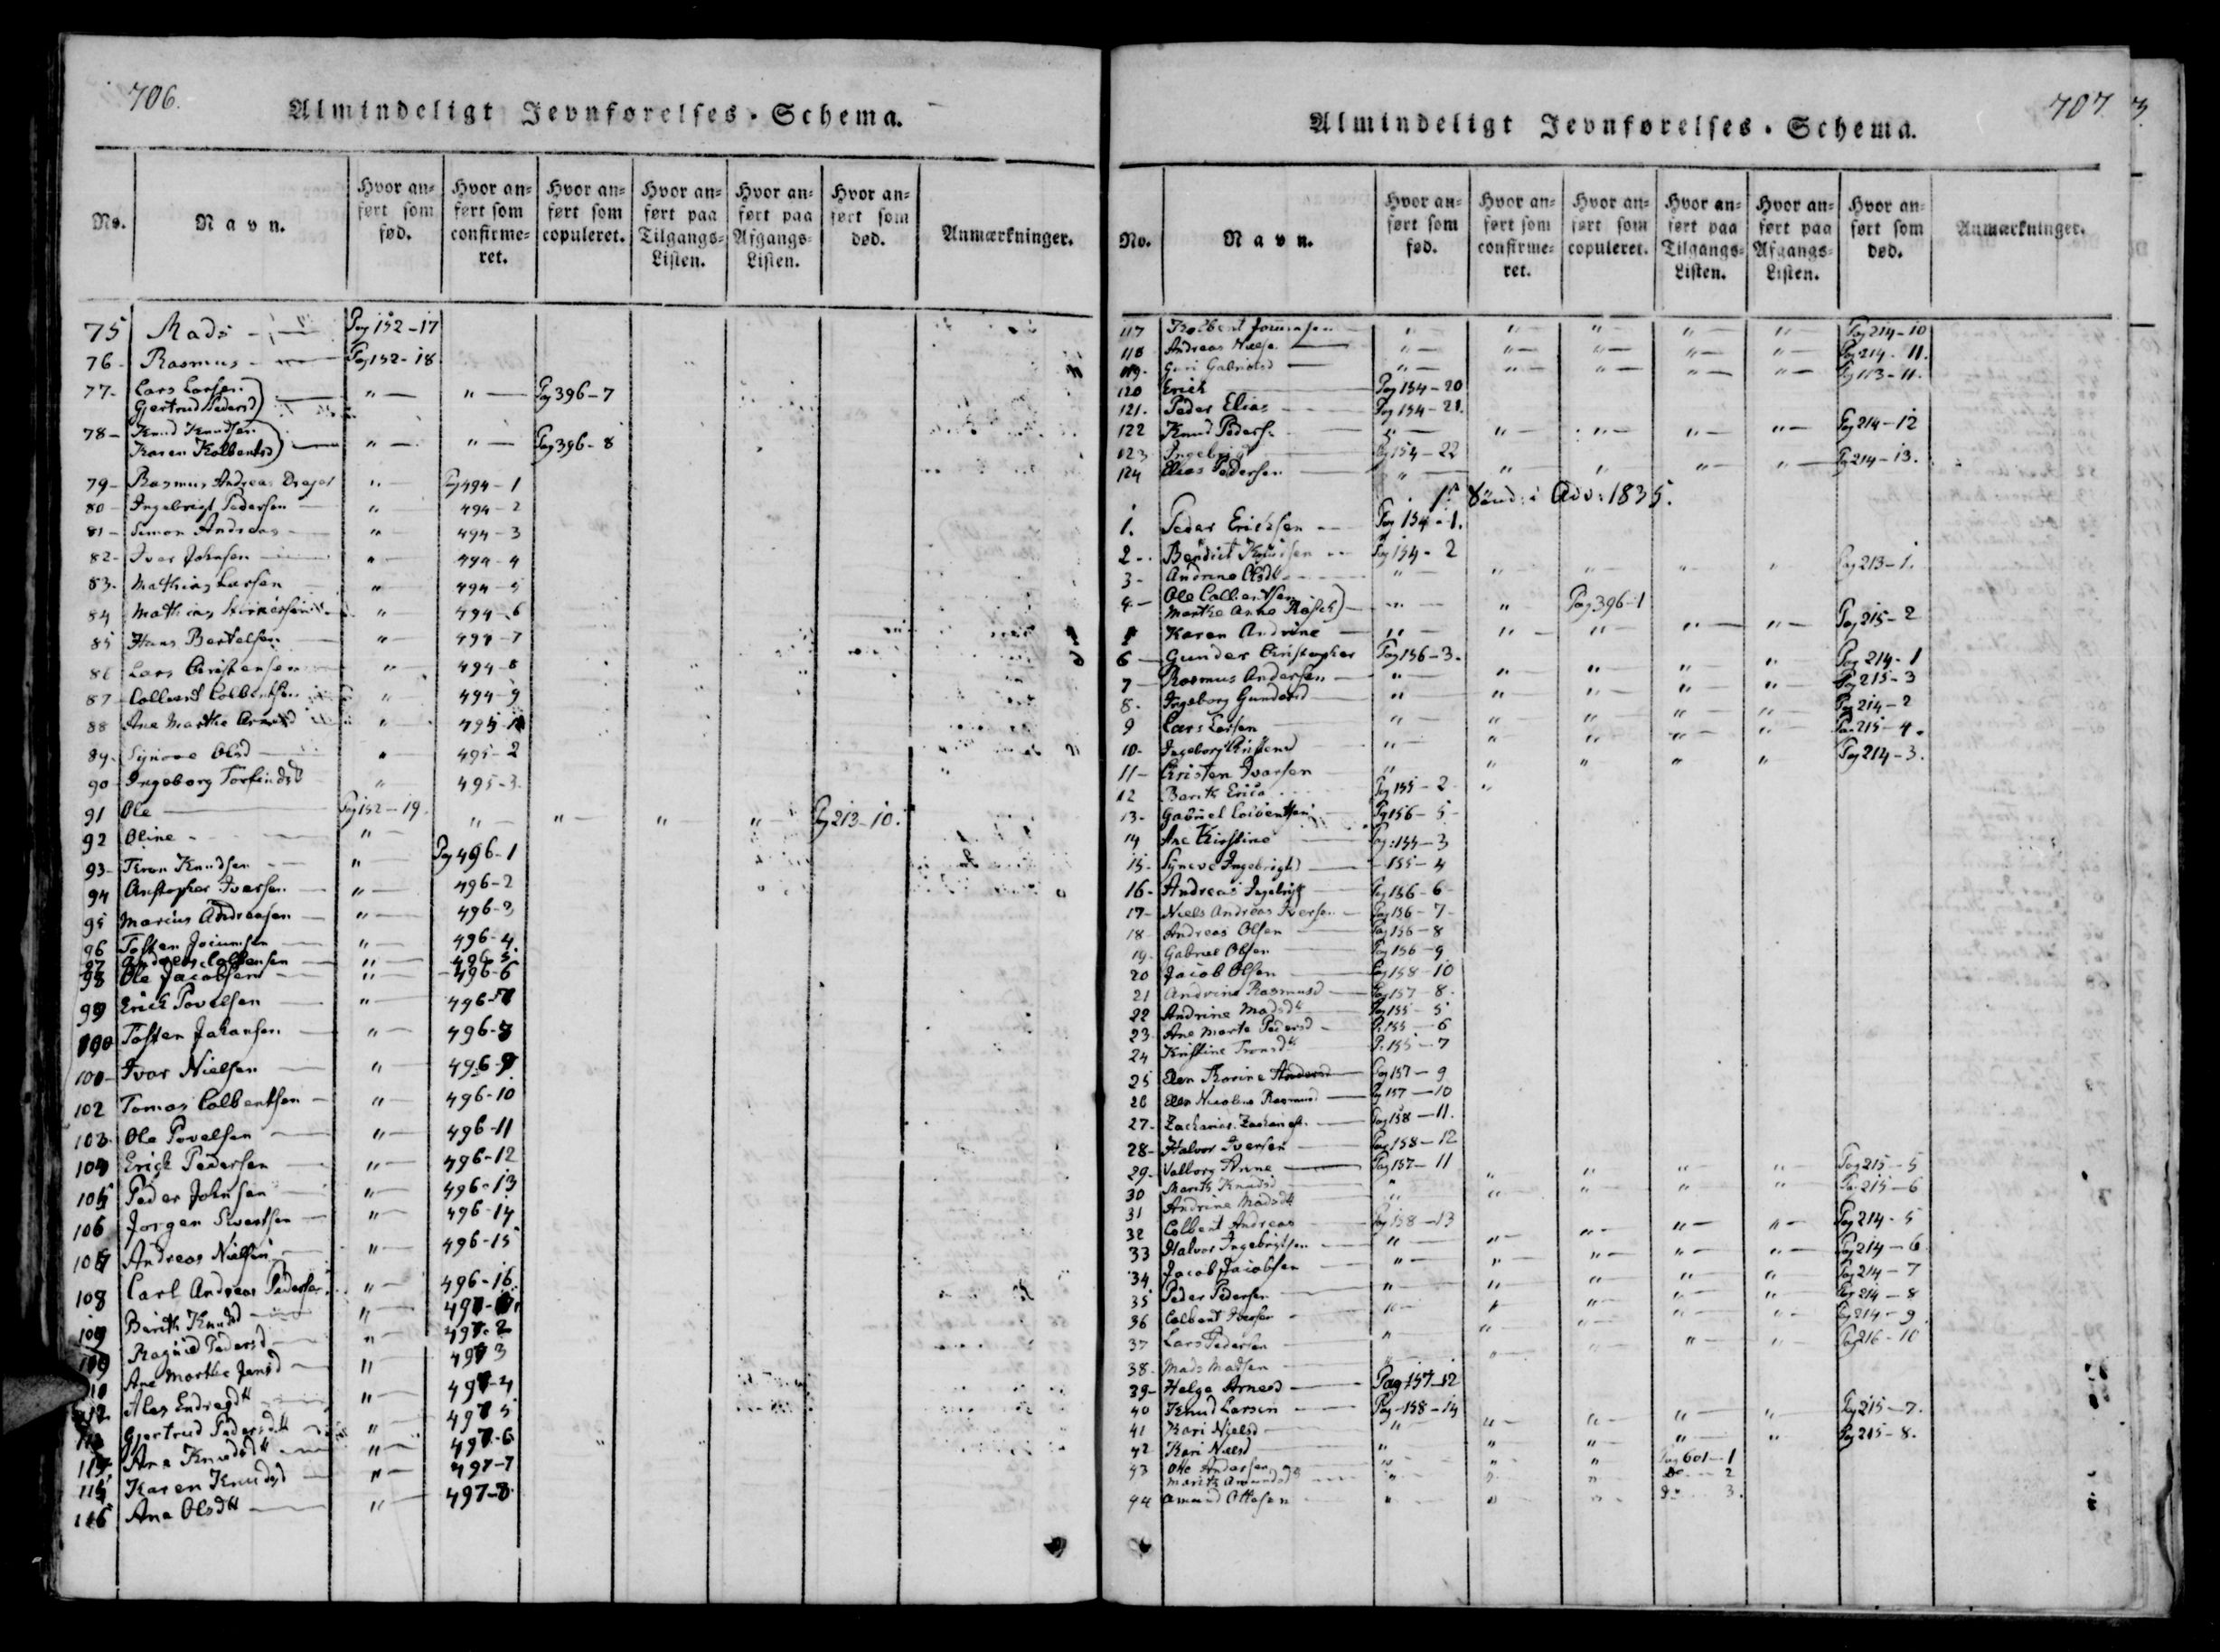 706.
Almindeligt Jevnførelses-Schema.
No. Navn. Hvor anført som fød. Hvor anført som confirmeret. Hvor anført som copuleret. Hvor anført paa Tilgangs-Listen. Hvor anført paa Afgangs-Listen. Hvor anført som død. Anmærkninger.
75 Mads Pag 152-17
76- Rasmus Pag 152-18
77- Lars Larsen
Gjertrud Pedersd) " " Pag 396-7
78- Knud Knudsen
Karen Kolbentsd) " " Pag 396-8
79- Rasmus Andreas " Pag 494-1
80- Ingebrigt Pedersen " 494-2
81- Simon Andreas " 494-3
82- Iver Johnsen " 494-4
83- Mathias Larsen " 494-5
84 Mathias " 494-6
85 Hans Bertelsen " 494-7
86 Lars Christensen " 494-8
87- Colbent Colbentsen " 494-9
88 Ane Marthe " 495-1
89- Synove Olsd " 495-2
90 Ingeborg " 495-3
91 Ole Pag 152-19. " " " " Pag 213-10.
92 Oline "
93- Knudsen " Pag 496-1
94 Christopher Iversen " 496-2
95 Marius Andreasen " 496-3
96 Tosten " 496-4.
97 Andreas " 496-5
98 Ole Jacobsen " 496-6
99 Erick Povelsen " 496-7
100 Tosten Johansen " 496-8
101- Ivar Nielsen " 496-9
102 Tomas Colbentsen " 496-10
103- Ole Povelsen " 496-11
104 Erick Pedersen " 496-12
105 Peder Johnsen " 496-13
106 Jørgen Sivertsen " 496-14
107 Andreas Nielsen " 496-15
108 Carl Andreas Pedersen " 496-16.
109 Berith Knudsd " 497-1
Ragnild Pedersd " 497-2
Ane Marthe Jensd " 497 3
Ales Endresdtt " 497-4
Gjertrud Pedersdtt " 497 5
Ane Knudsdtt " 497-6
115 Karen Knudsd " 497-7
116 Ane Olsdtt " 497-8
707.
Almindeligt Jevnførelses-Schema.
No. Navn. Hvor anført som fød. Hvor anført som confirmeret. Hvor anført som copuleret. Hvor anført paa Tilgangs-Listen. Hvor anført paa Afgangs-Listen. Hvor anført som død. Anmærkninger.
117 Kolbent " " " " " Pag 214-10
118 Andreas " " " " " Pag 214-11.
119- Guri " " " " " Pag 113-11.
120 Erick Pag 154-20
121. Peder Elias Pag 154-21.
122 Knud Peders. " " " " " Pag 214-12
123 Ingebrigt Pag 154-22
124 Elias Pedersen " " " " " Pag 214-13.
1ste Sønd: i Adv: 1835.
1. Peder Ericksen Pag 154-1.
2-. Bendict Knudsen Pag 154-2
3- Andrine Olsdtt " " " " " Pag 213-1.
4- Ole Colbentsen
Marthe Anne) " " Pag 396-1
5 Karen Andrine " " " " " Pag 215-2
6 Gunder Christopher Pag 156-3.
7 Rasmus Andersen " " " " " Pag 214-1
8. Ingeborg Gundersd " " " " " Pag 215-3
9 Lars Larsen " " " " " Pag 214-2
10- Ingeborg " " " " " Pag 215-4.
11- Cristen Ivarsen " " " " " Pag 214-3.
12 Berith Erica Pag 155-2 "
13- Gabriel Colbentsen Pag 156-5
14 Ane Kirstine Pag: 155-3
15- Syneve Ingebrigtsd 155-4
16- Andreas Ingebrigts Pag 156-6
17- Niels Andreas Iversen Pag 156-7
18- Andreas Olsen Pag 156-8
19- Gabriel Olsen Pag 156-9
20 Jacob Olsen Pag 158-10
21 Andrine Rasmusd Pag 157-8.
22 Andrine Madsdtt Pag 155-5
23- Ane Marte Pedersd P. 155-6
24 Kristine P. 155-7
25 Elen Karine Andersd Pag 157-9
26 Elen Nicoline Rasmusd Pag 157-10
27- Zacharias Pag 158-11.
28- Halvor Iversen Pag 158-12
29- Valborg Anne Pag 157-11
30 Marith Knudsd " " " " " Pag 215-5
31 Andrine Madsdtt " " " " " Pag 215-6
32 Colbent Andreas Pag 158-13
33 Halvor Ingebrigtsen " " " " " Pag 214-5
34 Jacob Jacobsen " " " " " Pag 214-6
35 Peder Pedersen " " " " " Pag 214-7
36 Colbent Iversen " " " " " Pag 214-8
37 Lars Pedersen " " " " " Pag 214-9
38- Mads Madsen " " " " " Pag 216-10
39- Helge Arnesd Pag 157-12
40 Knud Larsen Pag-158-14
41 Kari Nielsd " " " " " Pag 215-7.
42 Kari Nielsd " " " " " Pag 215-8.
43 Otte Andersen " " " Pag 601-1
Marith Amundsdtt " " " do 2
44 Amund Ottesen " " " do 3.